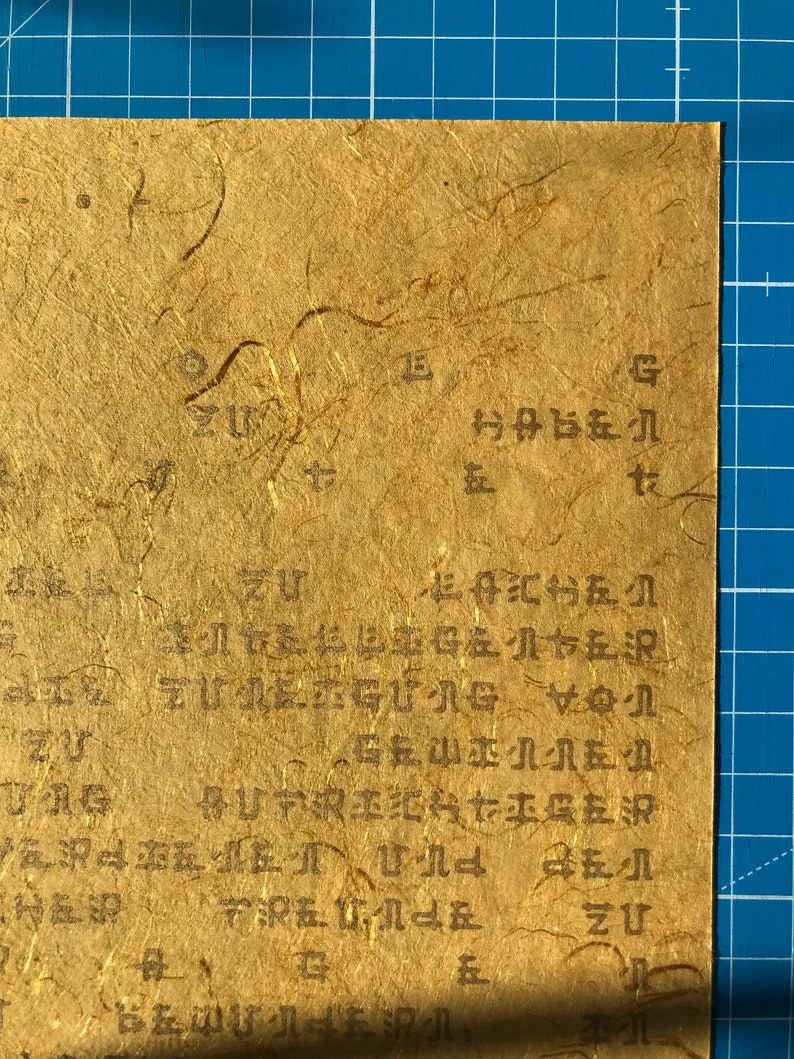 O L G
ZU HABEN
E U T E T
IEL ZU LACHEN
G INTELLIGENTER
DIE ZUNEIGUNG VON
ZU GEWINNEN
UNG AUFRICHTIGER
VERDIENEN UND DEN
CHER FREUNDE ZU
R A G E N
U BEWUNDERN, IN